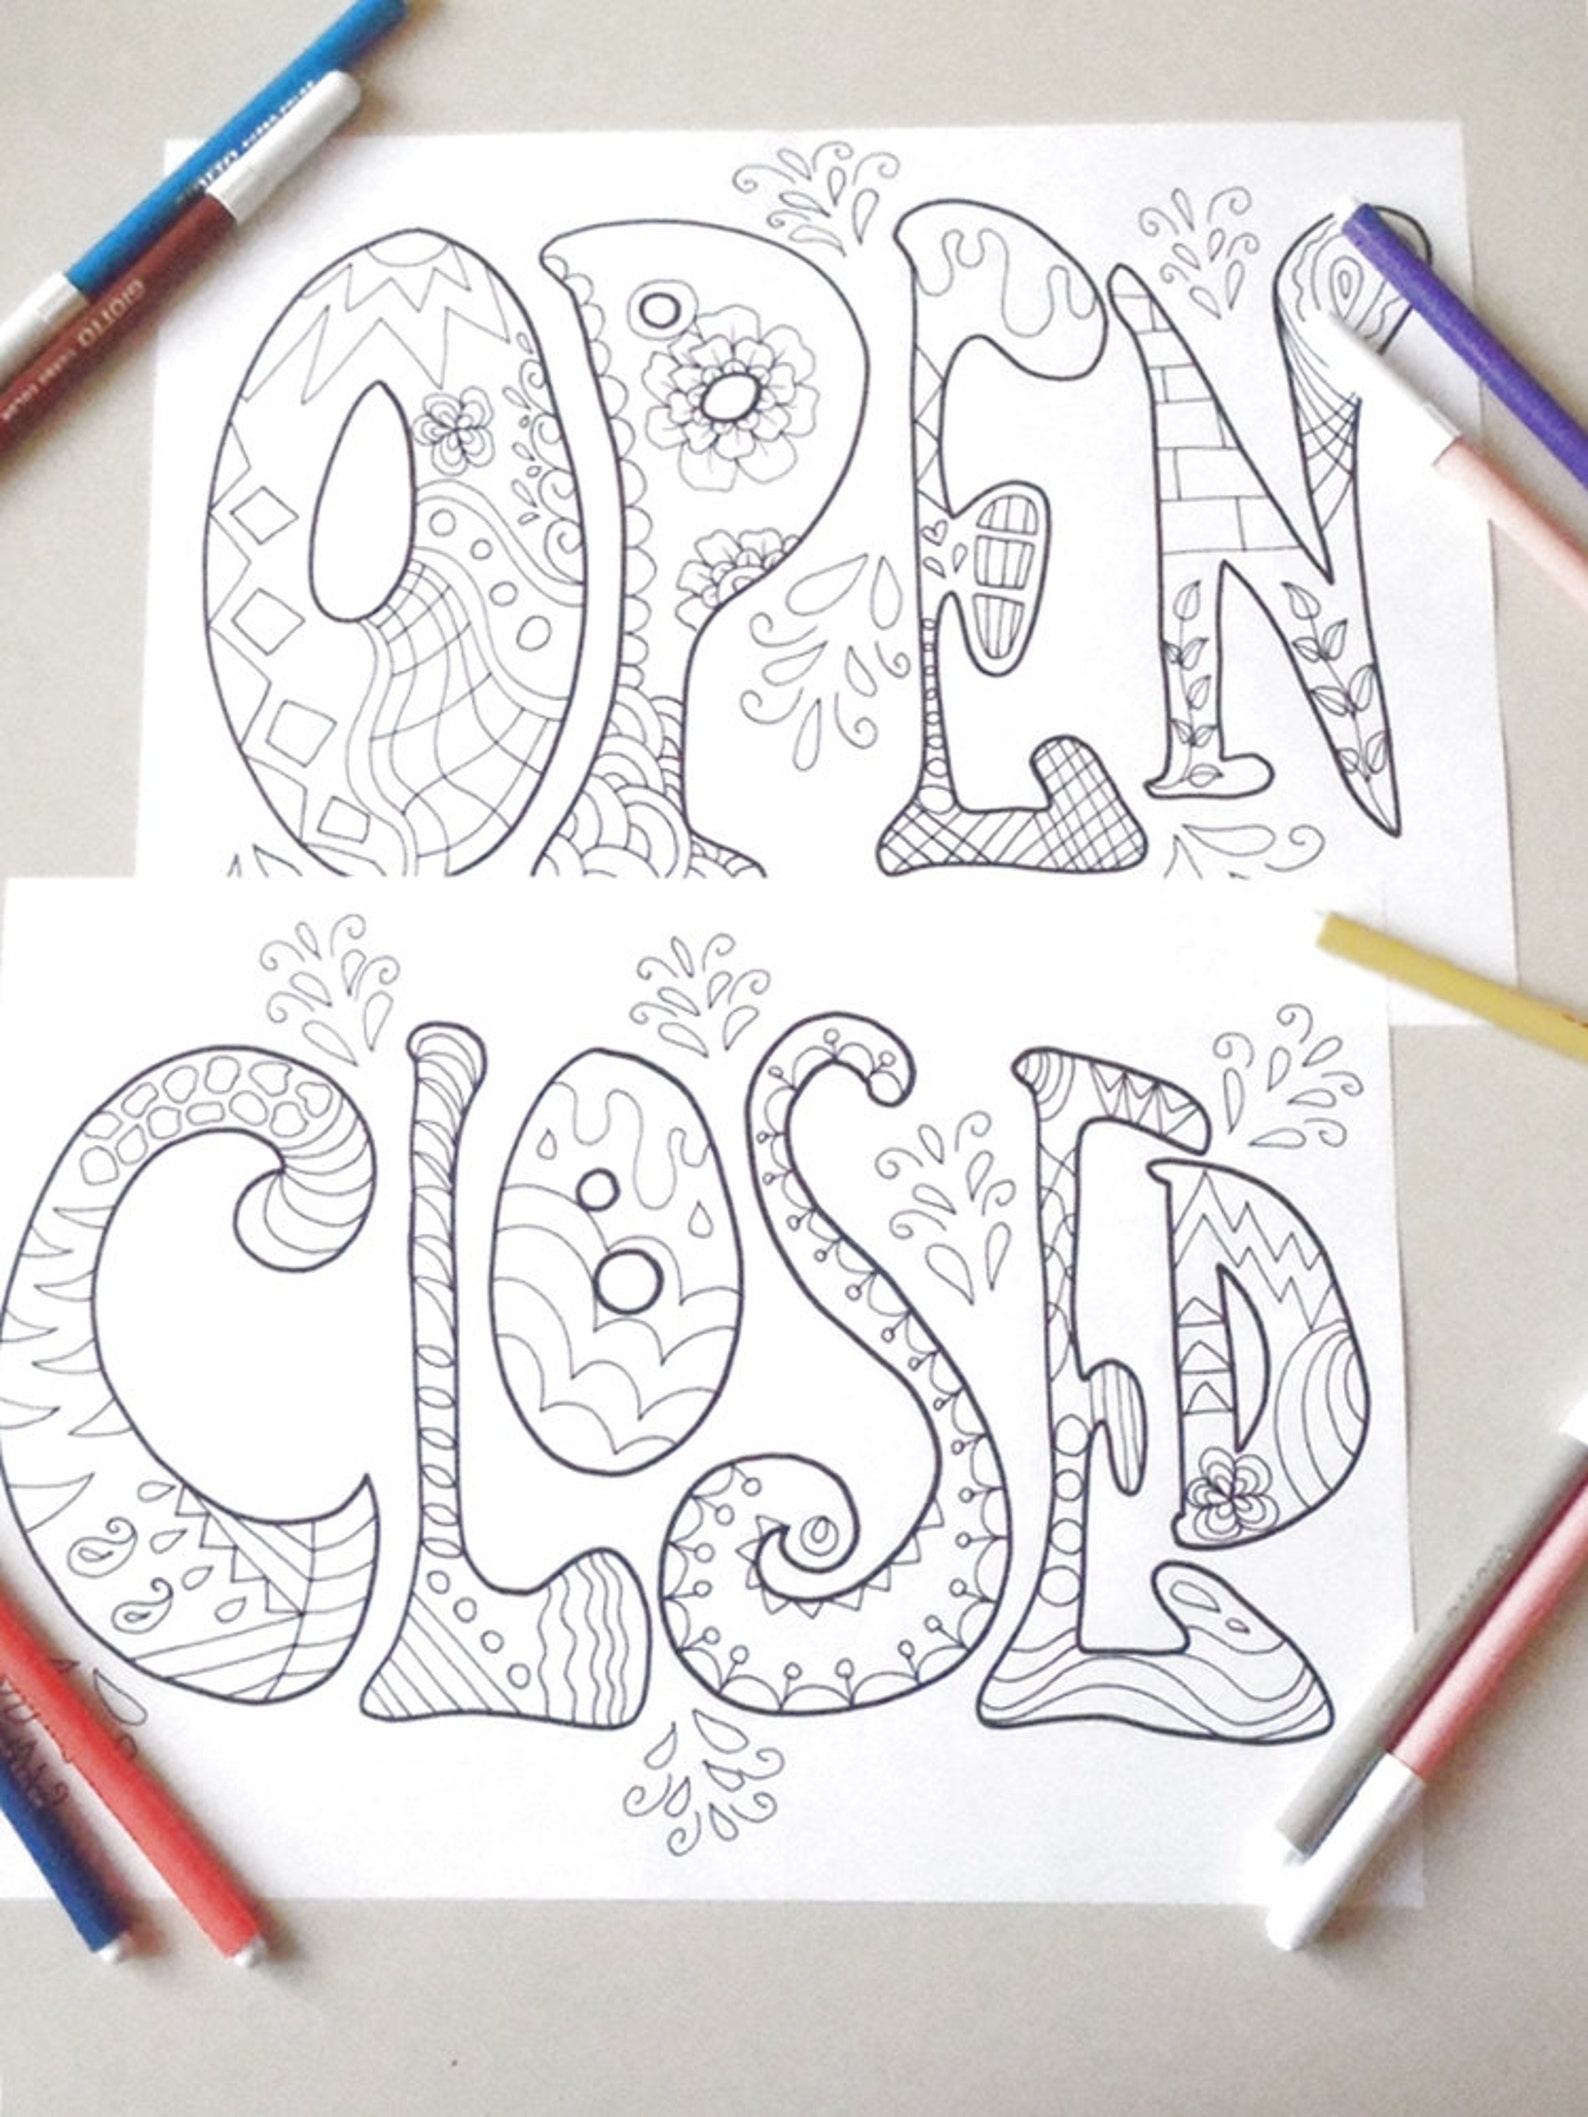 OPEN
CLOSED
GIOTTO